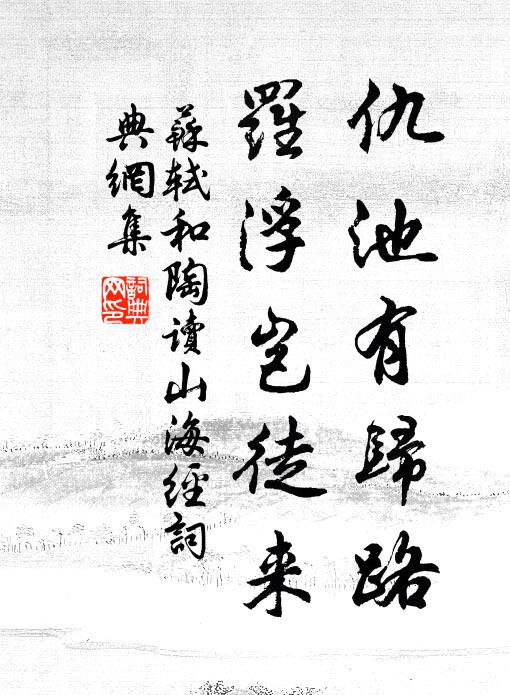 仇池有歸路
羅浮豈徒来
蘇軾和陶讀山海經詞
典網集
詞典
网印